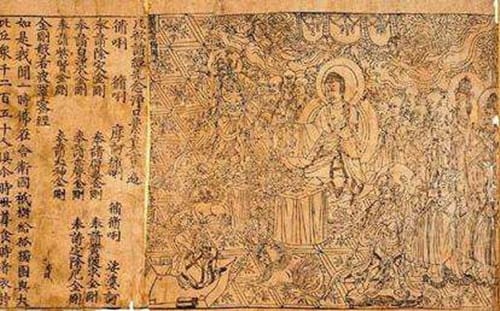 凡欲讀經先念淨口業真言一遍
脩唎 脩唎 摩訶脩唎 脩脩唎 娑婆訶
奉請除災金剛 奉請辟毒金剛
奉請黃隨求金剛 奉請白淨水金剛
奉請赤聲金剛 奉請定除災金剛
奉請紫賢金剛 奉請大神金剛
金剛般若波羅蜜經
如是我聞一時佛在舍衛國祇樹給孤獨園與大
比丘衆千二百五十人俱尒時世尊食時著衣持